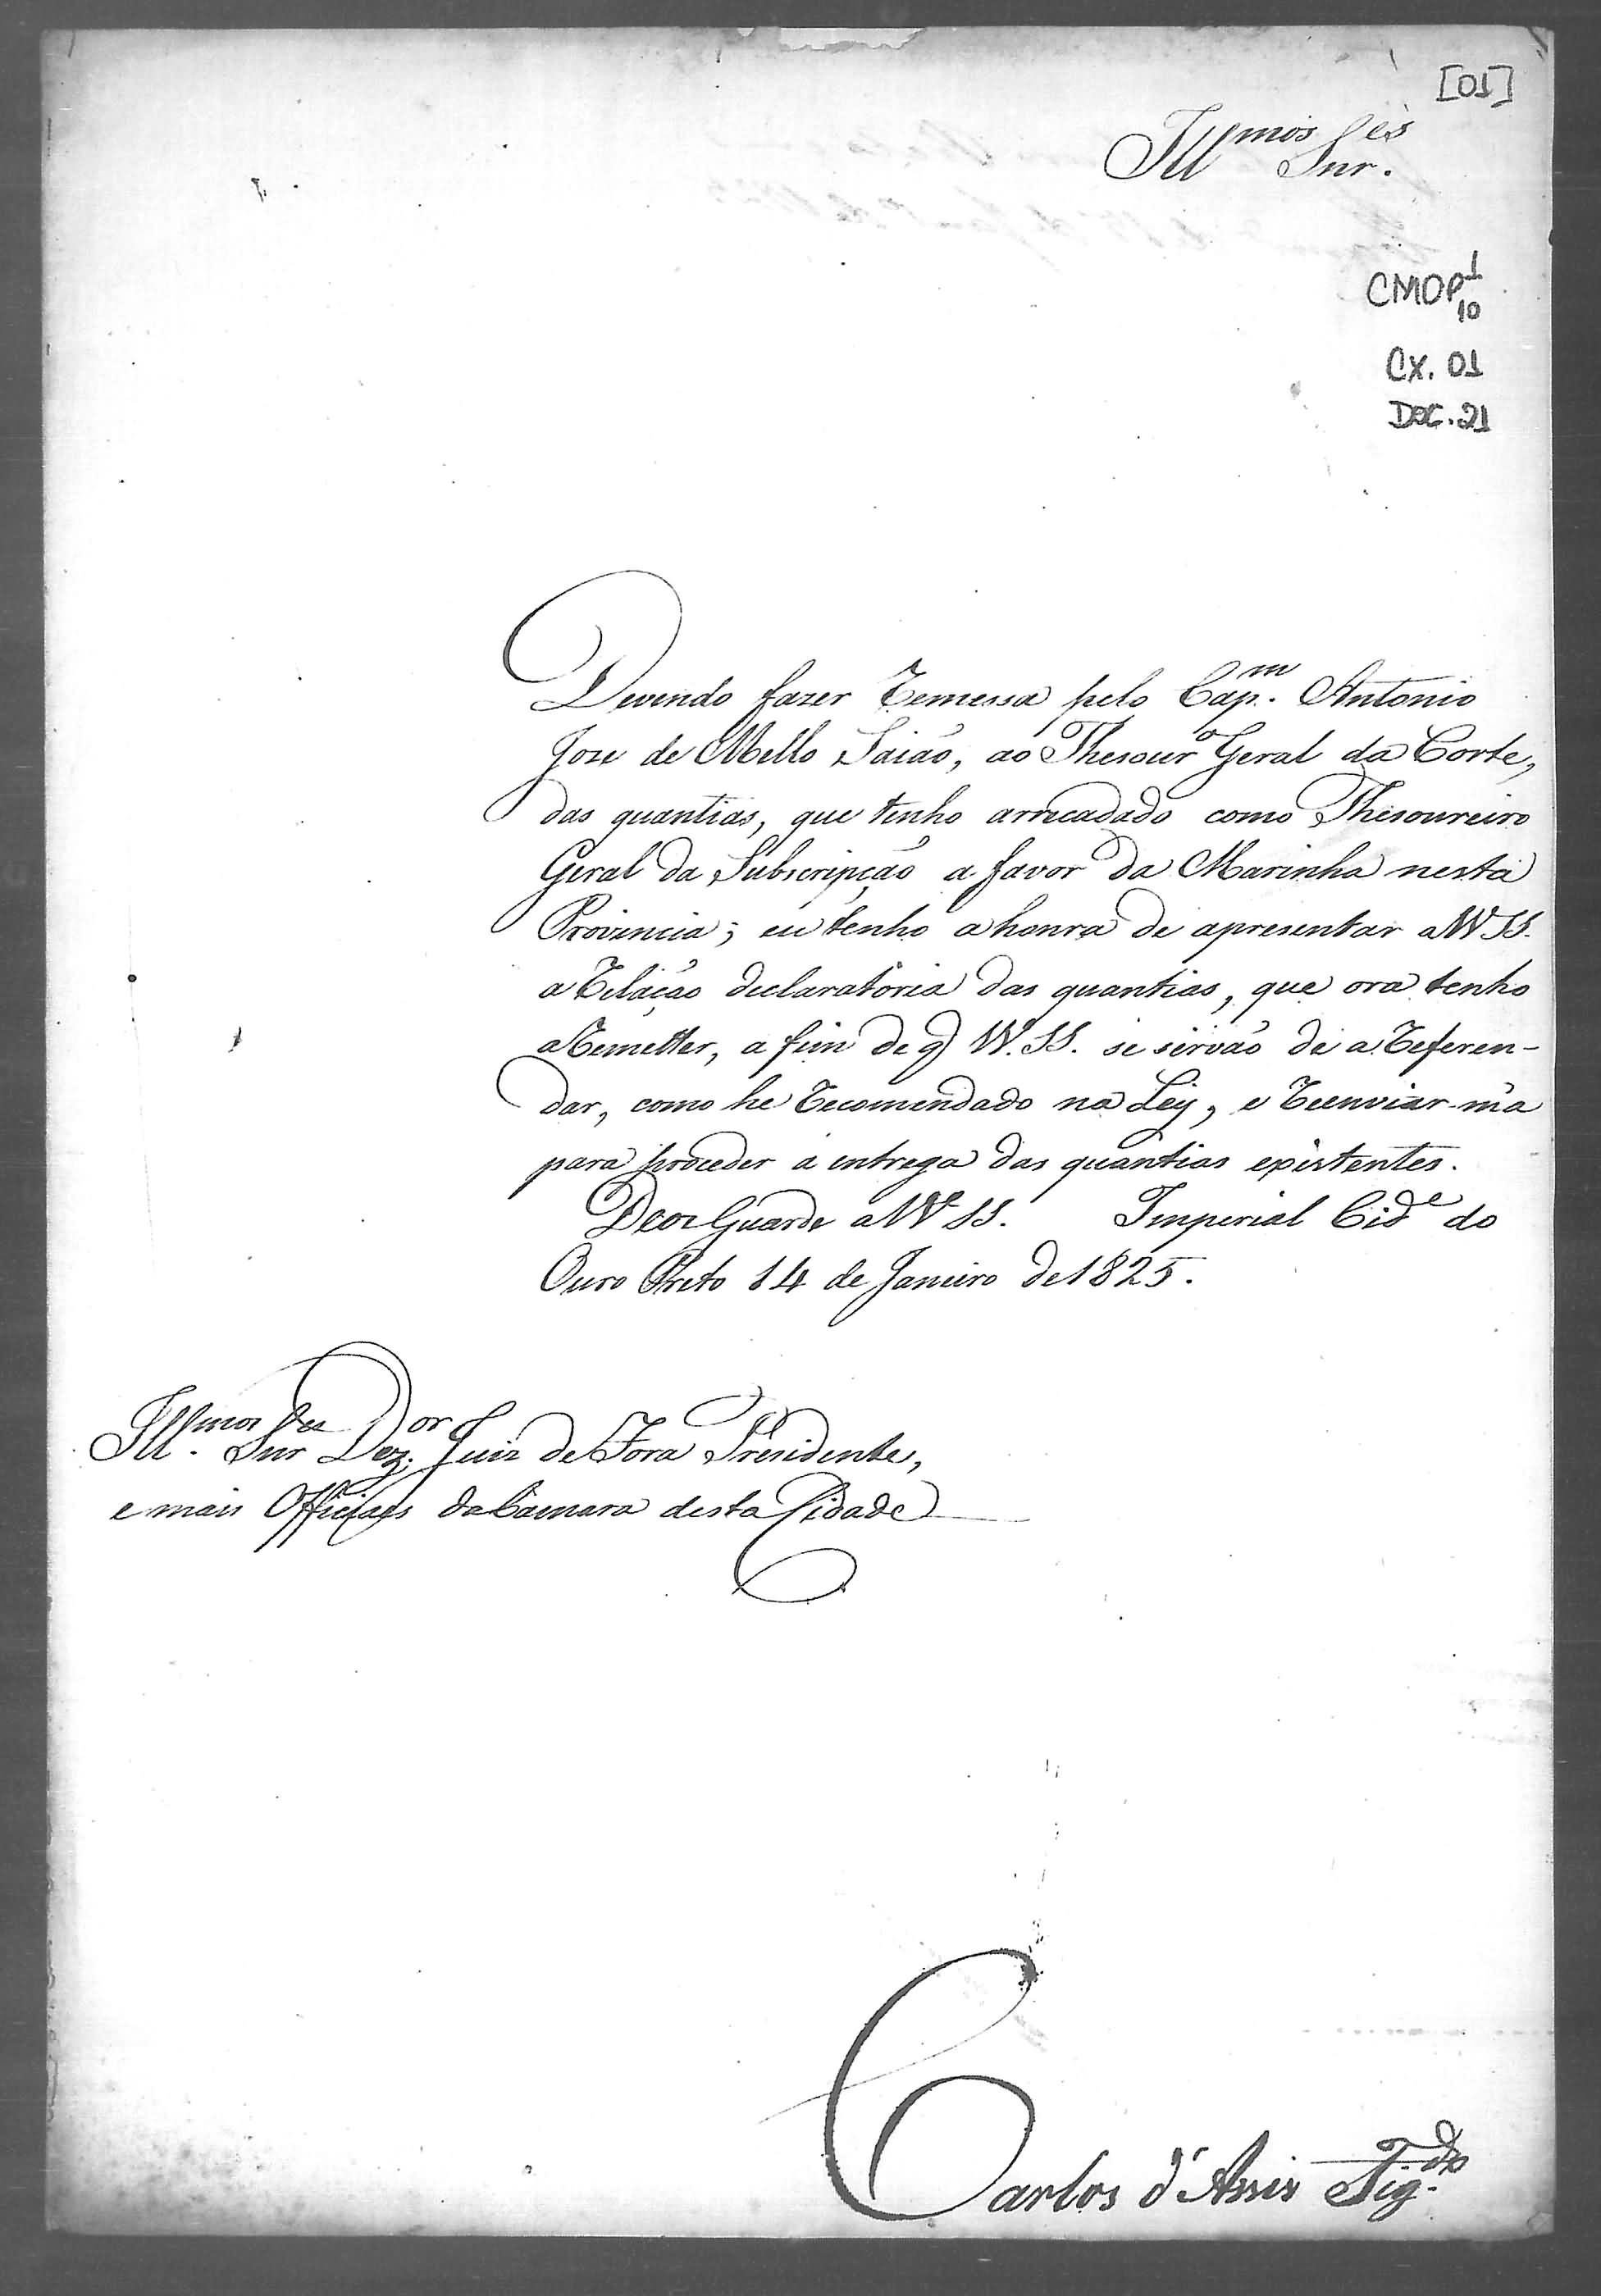 [01]
Ill.mos Snr.es
CMOP 1/10
CX. 01
DOC. 21
Devendo fazer Remessa pelo Cap.m Antonio
Joze de Mello Saião, ao Thesour.o Geral da Corte,
das quantias, que tenho arrecadado como Thesoureiro
Geral da Subscripção a favor da Marinha nesta
Provincia; eu tenho a honra de apresentar a VV SS.
a Relação declaratoria das quantias, que ora tenho
a Remetter, a fim de q VV. SS. se sirvão de a Referen-
dar, como he Recomendado na Ley, e Reenviar-ma
para proceder a entrega das quantias existentes.
Deos Guarde a VV SS. Imperial Cid.e do
Ouro Preto 14 de Janeiro de 1825.
Ill.mos Snr.es Dez.or Juiz de Fora Prezidente,
e mais Officiaes da Camara desta Cidade
Carlos d'Assis Fig.do